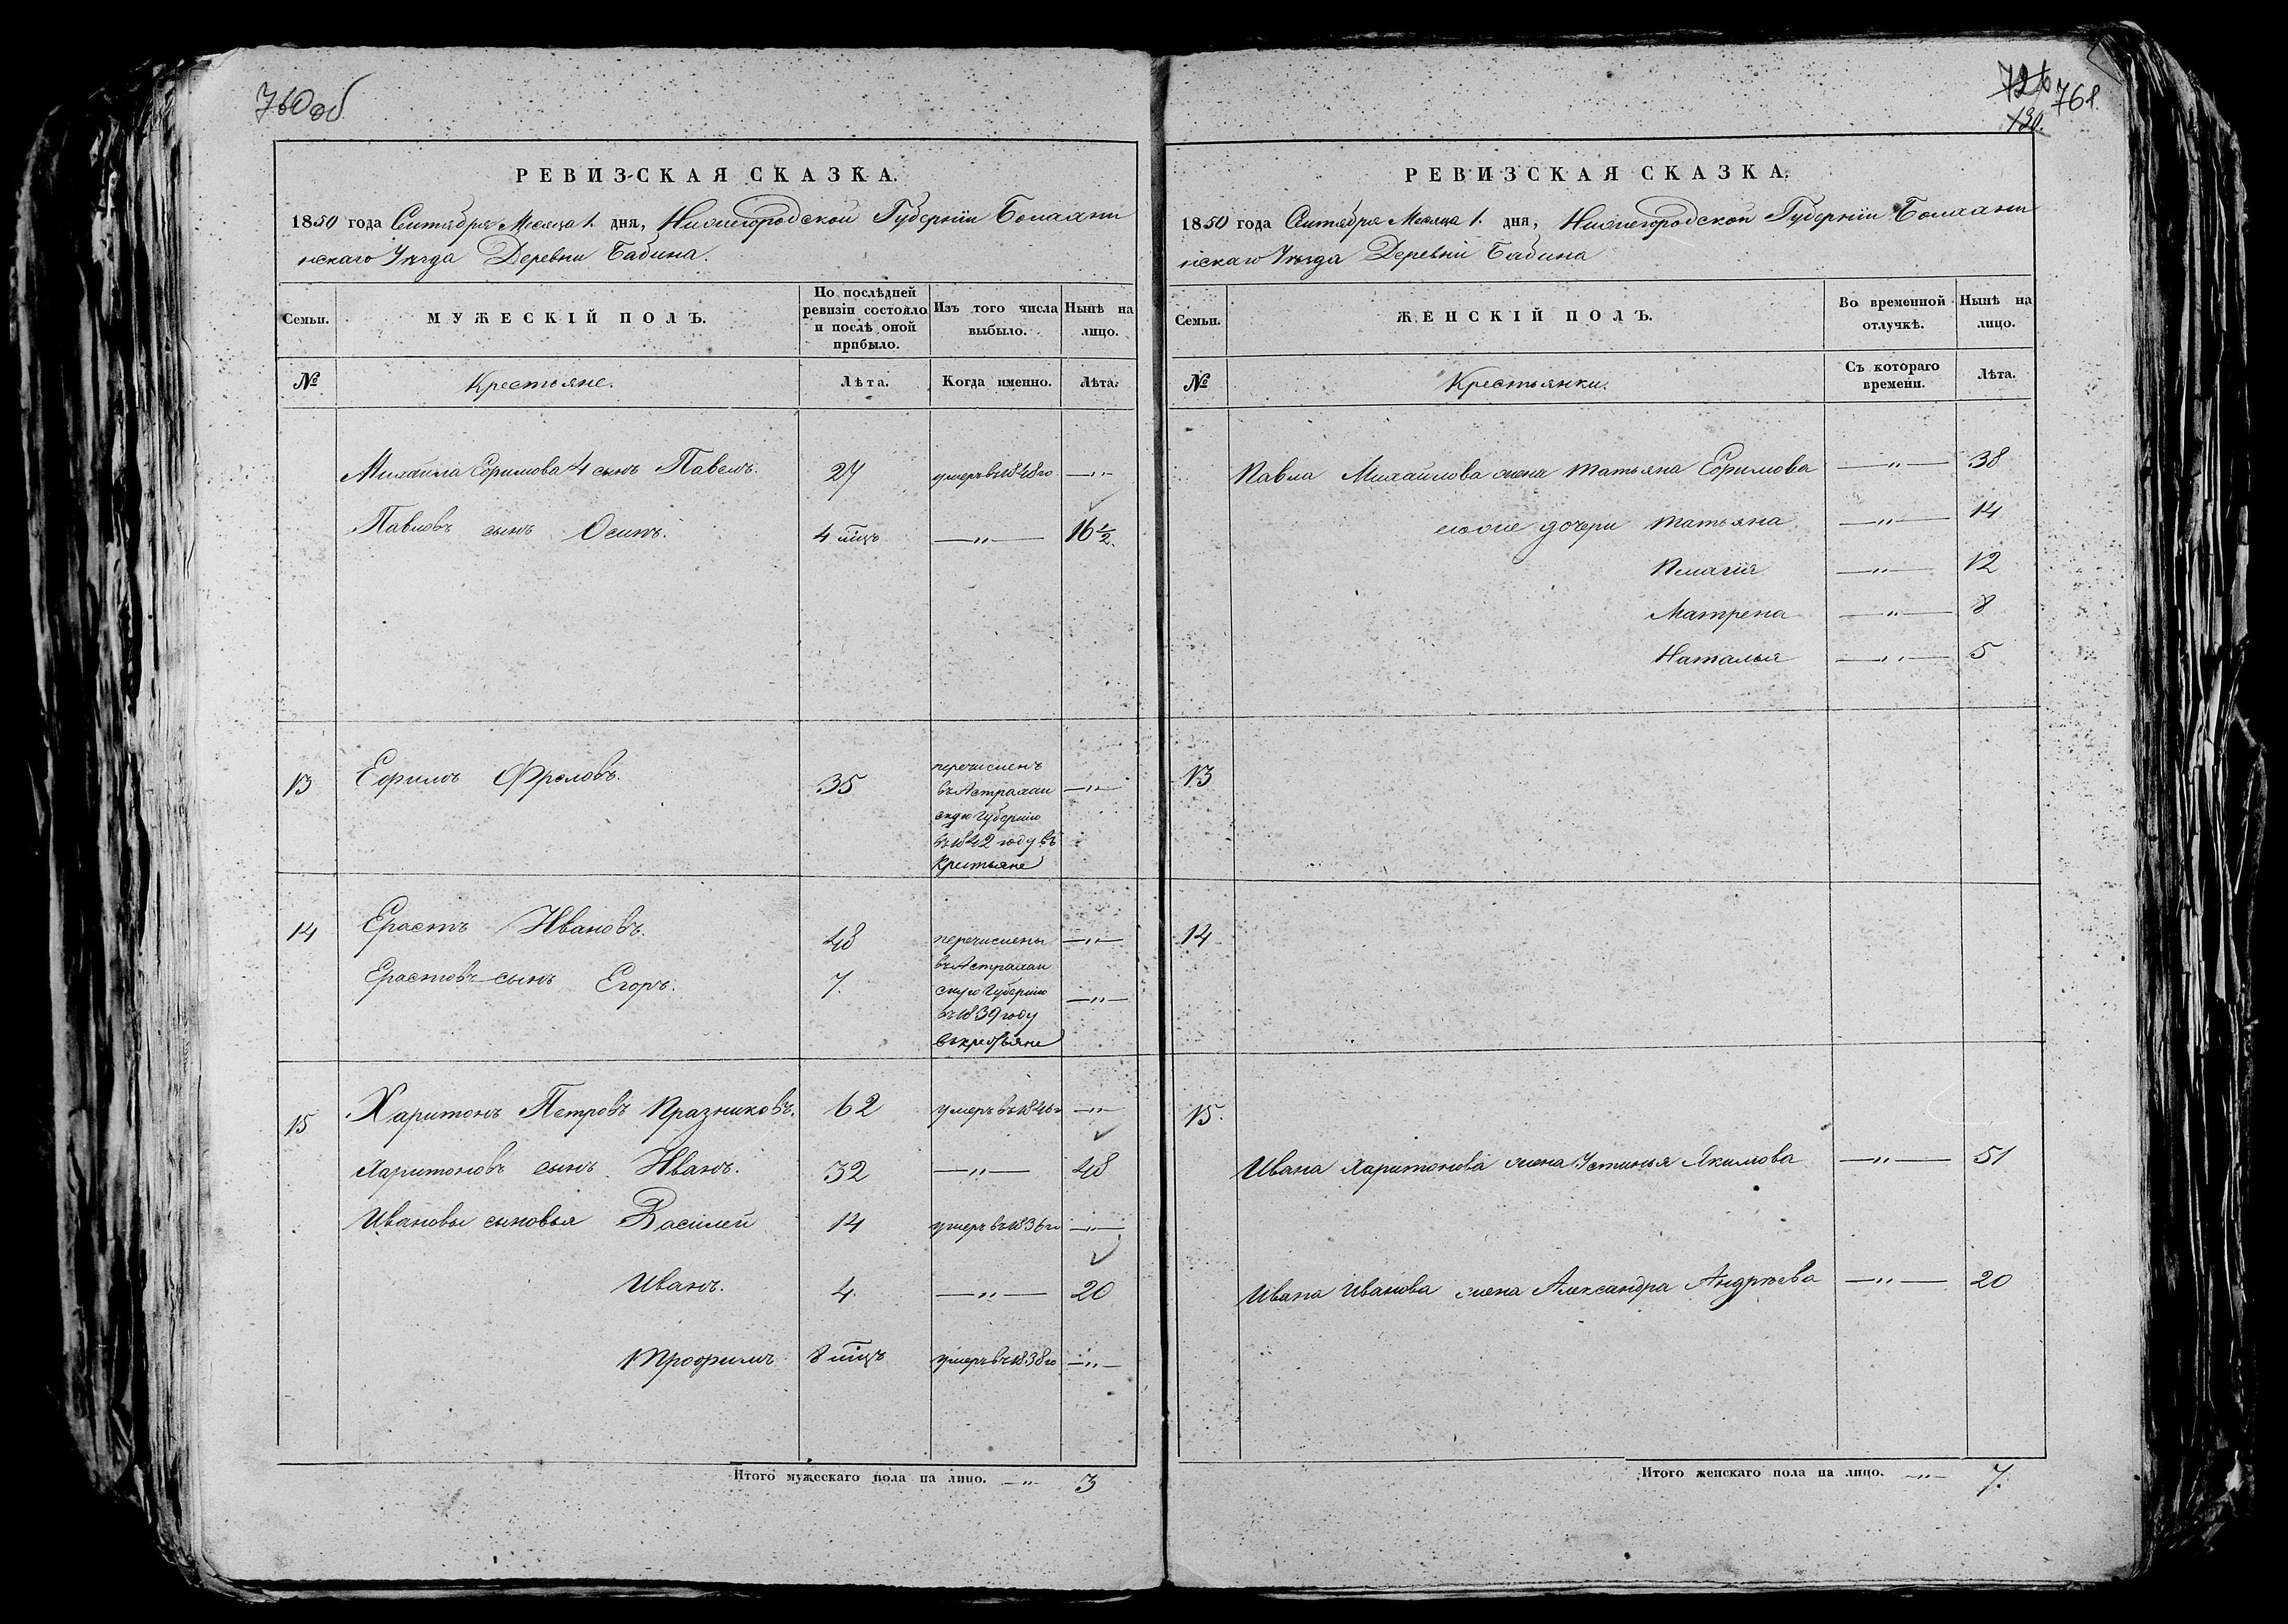 760об
РЕВИЗСКАЯ СКАЗКА.
1850 года Сентября Месяца 1. дня, Нижегородской Губерніи Балахни
нскаго Уѣзда Деревни Бабина.
Семьи.
МУЖЕСКІЙ ПОЛЪ.
По послѣдней ревизіи состояло и послѣ оной прибыло.
Изъ того числа выбыло.
Нынѣ на лицо.
№
Крестьяне.
Лѣта.
Когда именно.
Лѣта.
Михайла Ефимова 4 сынъ Павелъ. 27 умеръ въ 1848го —„—
Павловъ сынъ Осипъ. 4 мѣцъ —„— 16 1/2.
13 Ефимъ Фроловъ. 35 перечисленъ —„—
въ Астрахан
скую Губернію
въ 1842 году въ
Крестьяне
14 Ерастъ Ивановъ. 48 перечислены —„—
Ерастовъ сынъ Егоръ. 7. въ Астрахан
скую Губернію —„—
въ 1839 году
въ крестьяне
15 Харитонъ Петровъ Празниковъ. 62 умеръ въ 1846г —„—
Харитоновъ сынъ Иванъ. 32 —„— 48
Ивановы сыновья Василей 14 умеръ въ 1836го —„—
Иванъ. 4. —„— 20
Трофимъ 8 мѣцъ умеръ въ 1838го —„—
Итого мужескаго пола на лицо. —„— 3
726 761
130.
РЕВИЗСКАЯ СКАЗКА.
1850 года Сентября Месяца 1. дня, Нижегородской Губерніи Балахни
нскаго Уѣзда Деревни Бабина
Семьи.
ЖЕНСКІЙ ПОЛЪ.
Во временной отлучкѣ.
Нынѣ на лицо.
№
Крестьянки.
Съ котораго времени.
Лѣта.
Павла Михайлова жена Татьяна Ефимова —„— 38
дочери Татьяна —„— 14
Пелагія —„— 12
Матрена —„— 8
Наталья —„— 5
13
14
15.
Ивана Харитонова жена Устинья Якимова —„— 51
Ивана Иванова жена Александра Андреева —„— 20
Итого женскаго пола на лицо. —„— 7.